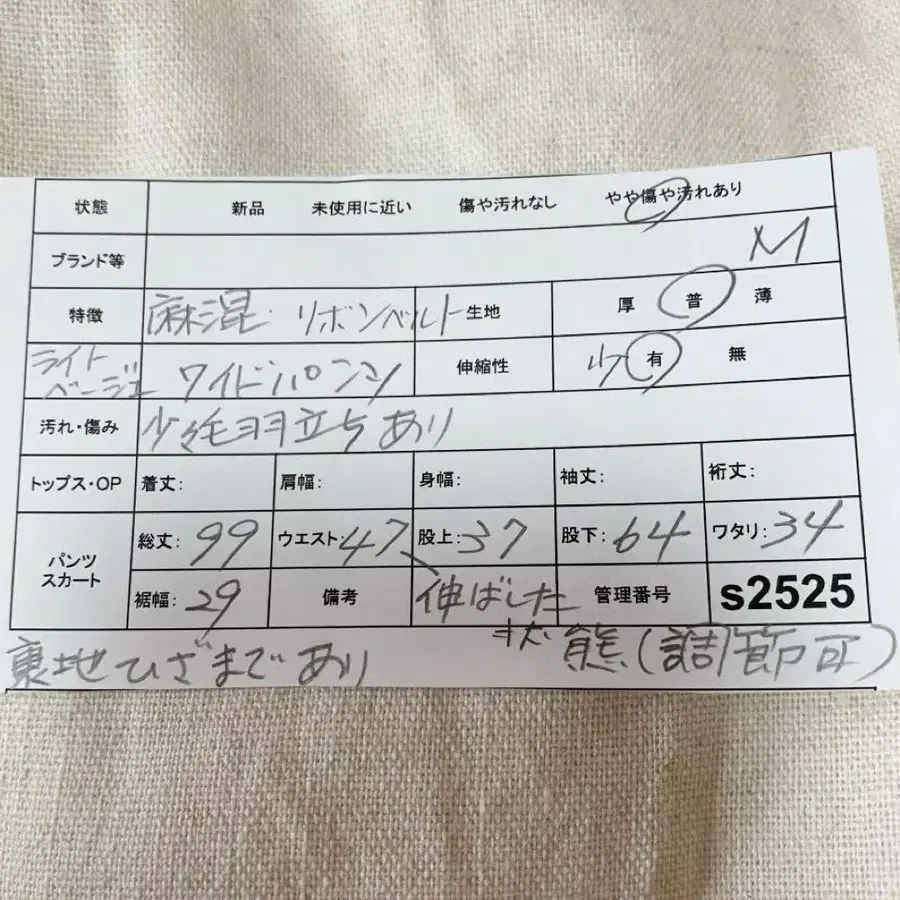 状態 新品 未使用に近い 傷や汚れなし やや傷や汚れあり
ブランド等 M
特徴 麻混 リボンベルト 生地 厚 普 薄
ライトベージュ ワイドパンツ 伸縮性 少 有 無
汚れ・傷み 少々毛羽立ちあり
トップス・OP 着丈: 肩幅: 身幅: 袖丈: 裄丈:
パンツ スカート 総丈: 99 ウエスト: 47 股上: 37 股下: 64 ワタリ: 34
裾幅: 29 備考 伸ばした 管理番号 s2525
状態(調節可)
裏地ひざまであり